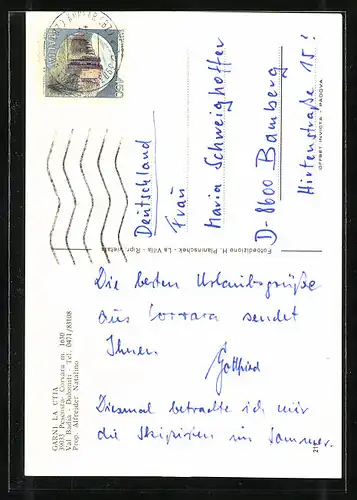 Die besten Urlaubsgrüße
aus Corvara sendet
Ihnen
Gottfried
Diesmal betrachte ich mir
die Skipisten im Sommer.
Deutschland
Frau
Maria Schweighoffer
D-8600 Bamberg
Hirtenstraße 15!
GARNI LA ÜTIA
39033 Pescosta - Corvara m. 1650
Val Badia - Dolomiti - Tel. 0471/83108
Prop. Alfreider Natalino
Fotoedizione H. Planinschek - La Villa - Ripr. vietata
OFFSET INVICTA - PADOVA
450